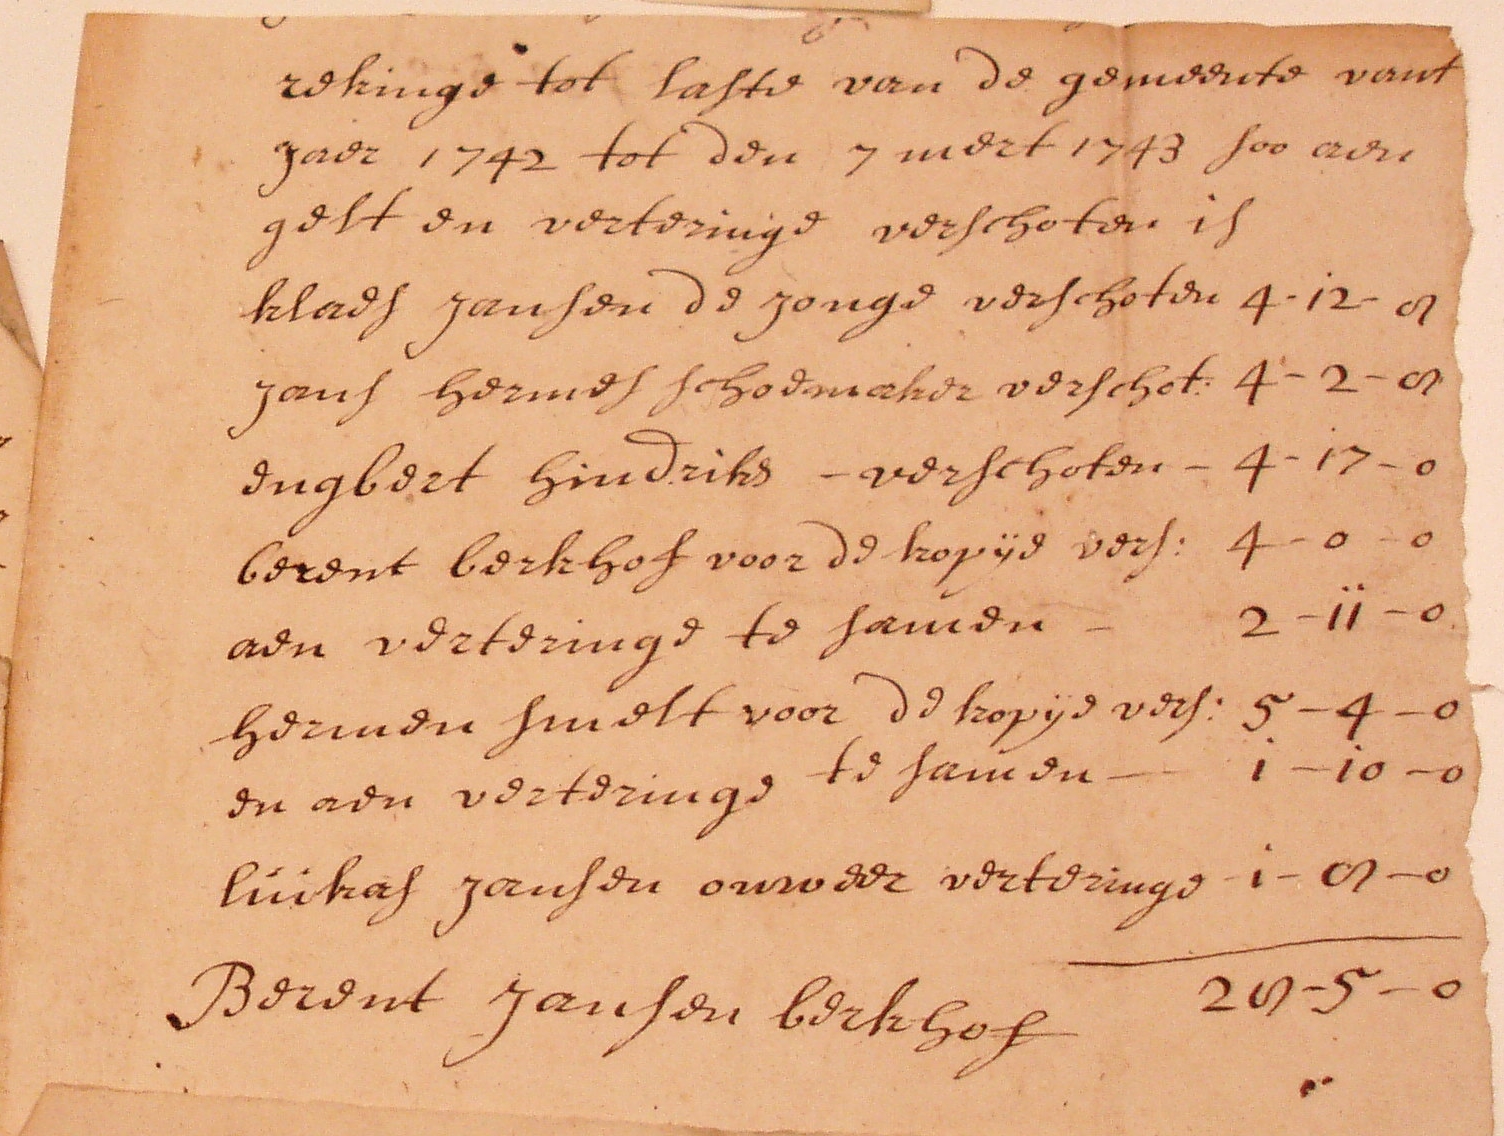 rekinge tot laste van de gemeente vant
jaer 1742 tot den 7 mert 1743 soo aen
gelt en verteringe verschoten is
klaes jansen de jonge verschoten 4-12-8
jans hermes schoemaker verschot: 4-2-8
engbert hindriks - verschoten - 4-17-0
berent berkhof voor de kopije vers: 4-0-0
aen verteringe te samen - 2-11-0
hermen smelt voor de kopije vers: 5-4-0
en aen verteringe te samen - 1-10-0
luikas jansen ouweer verteringe - 1-8-0
Berent Jansen berkhof 28-5-0